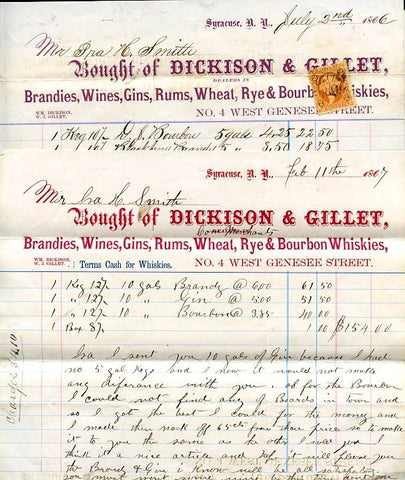 Syracuse, N. Y., July 2nd 1866
Mr Ira H. Smith
Bought of DICKISON & GILLET,
DEALERS IN
Brandies, Wines, Gins, Rums, Wheat, Rye & Bourbon Whiskies,
WM. DICKISON,
W. J. GILLET.
NO. 4 WEST GENESEE STREET.
1 Keg 10/- Bourbon 5 gals 4.25 22.50
1 " 10/- Blackberry Brandy 5 " 3.50 18.75
Syracuse, N. Y., Feb 11th 1867
Mr Ira H. Smith
Bought of DICKISON & GILLET,
Brandies, Wines, Gins, Rums, Wheat, Rye & Bourbon Whiskies,
WM. DICKISON,
W. J. GILLET.
Terms Cash for Whiskies.
NO. 4 WEST GENESEE STREET.
1 Keg 12/- 10 gals Brandy @ 6.00 61 50
1 " 12/- 10 " Gin @ 5.00 51 50
1 " 12/- 10 " Bourbon @ 3.85 40 00
1 Box 8/- 1 00 $154.00
Ira I sent you 10 gals of Gin because I had
no 5 gal Kegs and I new it would not make
any diferance with you. as for the Bourbon
I could not find any of Boards in town and
so I got the best I could for the money and
I made them nock off 65cts from thare price so to make
it to you the same as the other I sold you I
think it a nice article and hope it will please you
the Brandy & Gin I know will be all